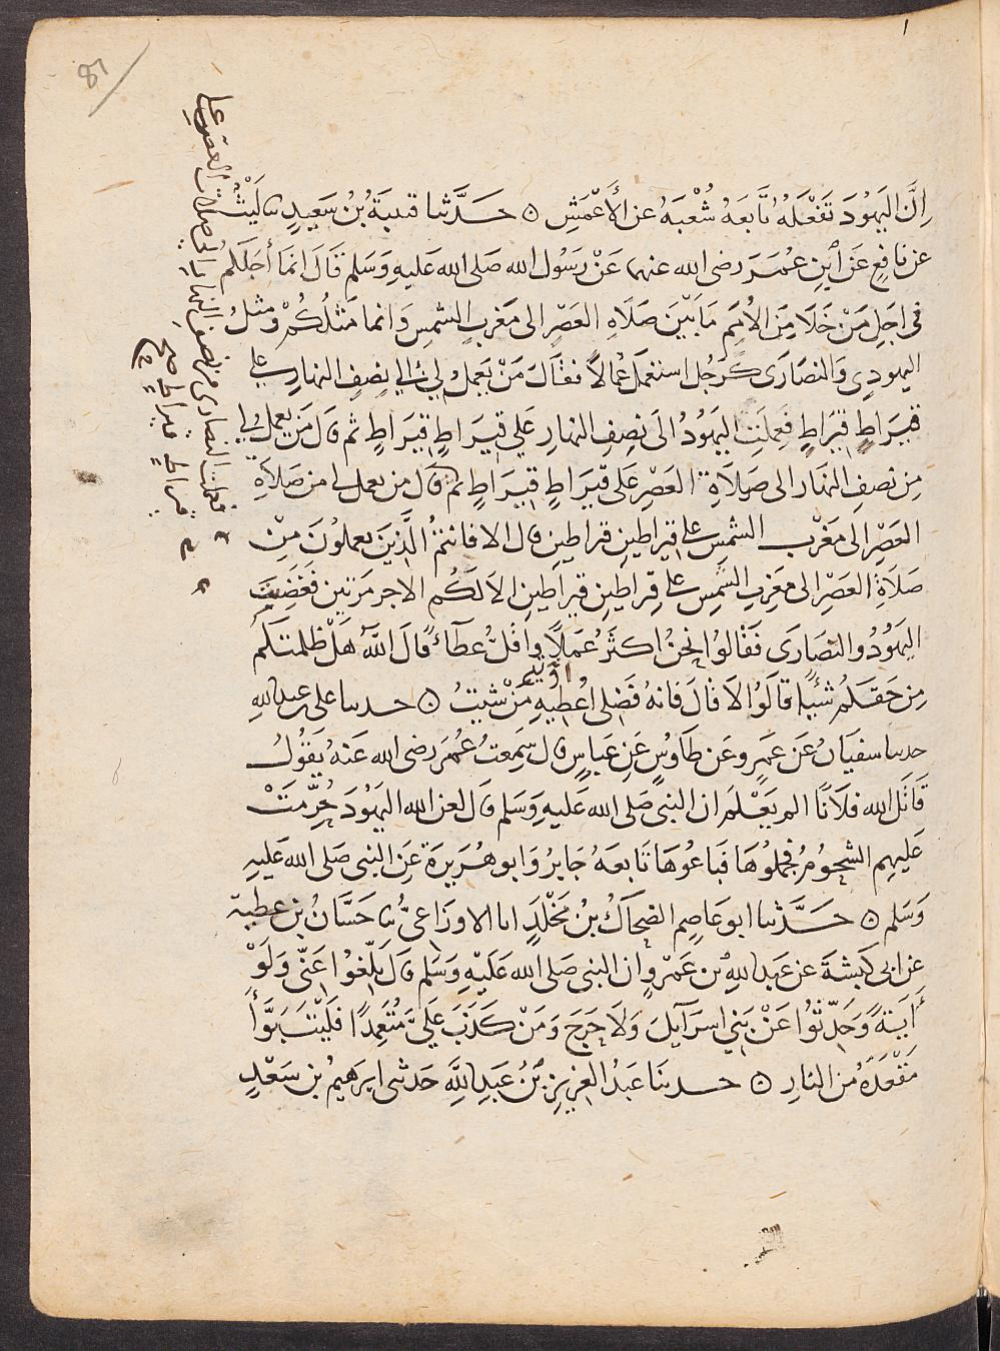 اِنَّ اليَهُودَ تَفْعَلَهُ تَابَعَهُ شُعْبَهُ عن الأَعْمَشِ ۞ حَدَّثنا قتيبة بُن سَعيدٍ نا لَيْثٌ
عن نافِعٍ عَن ابنِ عُمَرَ رضى الله عنهما عَنْ رَسُول الله صَلى الله عَليهِ وَسَلم قَالَ انمَا أجَلُكُم
فى اجَلِ مَنْ خَلَا مِنَ الأمَمِ مَا بَيْنَ صَلاَةِ العَصْرِ الى مَغرِبِ الشمسِ وَانما مَثَلُكُمْ وَمثلُ
اليهودِ وَالنصَارَى كَرَجُل استعمَل عُمالاً فقَالَ مَنْ يَعمَلُ لي الى نِصفِ النهارِ على
قيرَاطٍ قيرَاطٍ فَعِمَلَتِ اليَهُودُ الى نِصِفِ النهارِ عَلي قيرَاطٍ قيرَاطٍ ثم قال مَن يعملُ لي
مِن نصفِ النهَار الى صَلاَةِ العَصْرِ على قيرَاطٍ قيرَاطٍ ثم قال من يعمل لى من صَلاَةِ
العَصْرِ الى مَغْرِب الشمس على قيراطينِ قيراطينِ قال الا فانتمُ الَّذينَ يعملُونَ مِنْ
صَلَاةِ العَصْرِ الى مَغرِبِ الشمسِ على قِيراطِينِ قيراطينِ الا لَكُم الاجر مَرَتين فغَضِبَت
اليَهُودُ والنصَارَى فقَالُوا نحنُ اكثرُ عَمَلاً وأقلُّ عطَآءً قالَ اللهُ هَلْ ظلمتكم
أوتيه
مِن حَقكُم شيئًا قالَوُا لا قالَ فَانهُ فَضْلى اعُطِيهِ مَنْ شئتُ ۞ حدثنا على بن عبد اللهِ
حدثنا سفيَانُ عَن عَمرٍو عَن طَاوُسٍ عَنِ ابن عَباسٍ قال سَمِعتُ عُمَرَ رضى الله عَنهُ يَقُولُ
قَاتَل الله فلَانًا الم يَعْلَم ان النبى صَلى الله عَليهِ وَسَلم قال لعن الله اليَهُودَ حُرِّمَتْ
عَليهِم الشحُومُ فجَملُوهَا فَباعُوهَا تَابعَهُ جَابِرُ وَابو هُرَيرَةَ عَنِ النبى صَلى الله عَليهِ
وَسَلم ۞ حَدَّثنا ابو عَاصِمٍ الضحاكُ بنُ مَخْلَدٍ انا الاوزَاعىُّ نا حَسَّانُ بن عطيةَ
عن ابى كبشةَ عن عَبد اللهِ بْن عَمْرٍو ان النبى صَلى الله عَليْهِ وَسَلم قال بَلِّغُوا عَنِّى وَلَوْ
آيَةً وَحَدِّثُوُا عَنْ بَنِي اسرَآيلَ وَلَا حَرَجَ وَمَنْ كَذَبَ عَلَيَّ مُتَعِمدًا فَليْتَبَوَّأ
مَقْعَدَهُ من النارِ ۞ حدثنا عَبْدُ العَزيزِ بْنُ عَبدِ اللَّهِ حَدثنى ابرَهيمُ بن سَعْدٍ
فعملت النصارى من نصف النهار الى صلاة العصر على
قيراطٍ قيراطٍ صح